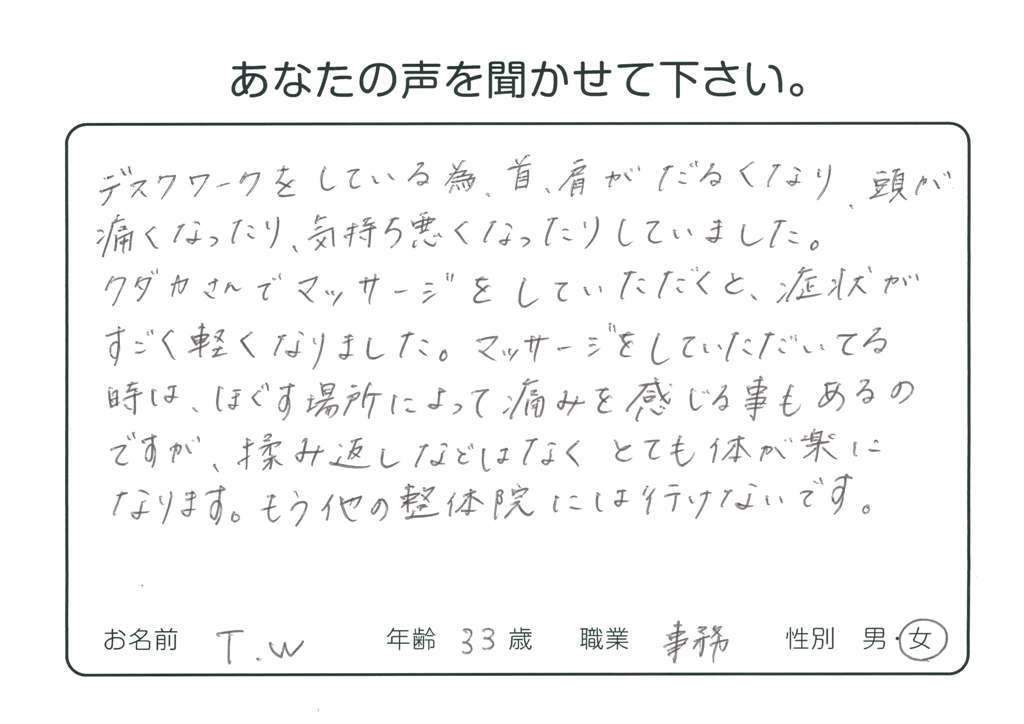 あなたの声を聞かせて下さい。
デスクワークをしている為、首、肩がだるくなり、頭が
痛くなったり、気持ち悪くなったりしていました。
クダカさんでマッサージをしていただくと、症状が
すごく軽くなりました。マッサージをしていただいてる
時は、ほぐす場所によって痛みを感じる事もあるの
ですが、揉み返しなどはなくとても体が楽に
なります。もう他の整体院には行けないです。
お名前 T.W 年齢 33歳 職業 事務 性別 男・女